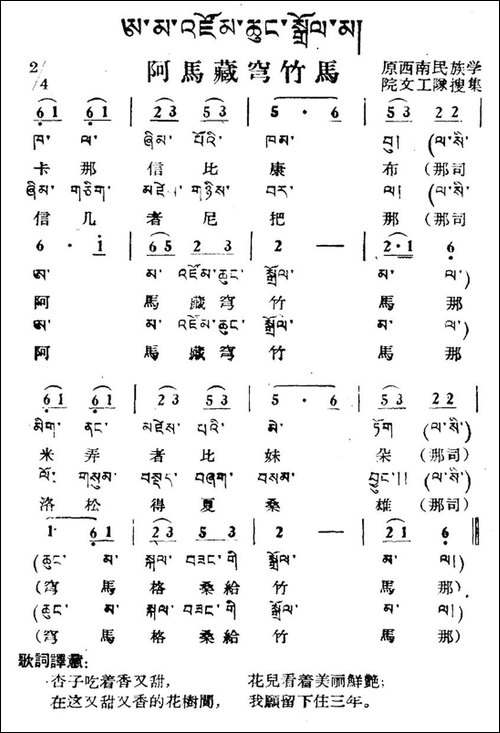 ཨ་མ་འཛོམ་ཆུང་སྒྲོལ་མ།
阿馬藏穹竹馬
原西南民族学
院文工隊搜集
2/4
6 1 6 1 2 3 5 3 5 · 6 5 3 2 2
ཁ་ ལ་ ཞིམ་ པོའི་ ཁམ་ བུ། (ལ་སི་
卡 那 信 比 康 布 (那司
ཞིམ་ གཅིག་ མཛེ། གཉིས་ བར་ ལ། (ལ་སི་
信 几 者 尼 把 那 (那司
6 · 1 6 5 2 3 2 — 2 · 1 6
ཨ་ མ་ འཛོམ་ཆུང་ སྒྲོལ་ མ་ ལ་)
阿 馬 藏 穹 竹 馬 那
ཨ་ མ་ འཛོམ་ཆུང་ སྒྲོལ་ མ་ ལ་)
阿 馬 藏 穹 竹 馬 那
6 1 6 1 2 3 5 3 5 · 6 5 3 2 2
མིག་ ནང་ མཛེས་ པའི་ མེ་ ཏོག (ལ་སི་)
米 弄 者 比 妹 朵 (那司)
ལོ་ གསུམ་ བསྡད་ བཞག་ བསམ་ བྱུང་།། (ལ་སི་)
洛 松 得 夏 桑 雄 (那司)
1 · 6 1 2 3 5 3 2 — 2 1 6
(ཆུང་ མ་ སྐལ་ བཟང་གི སྒྲོལ་ མ་ ལ།)
(穹 馬 格 桑 給 竹 馬 那)
(ཆུང་ མ་ སྐལ་ བཟང་གི སྒྲོལ་ མ་ ལ།)
(穹 馬 格 桑 給 竹 馬 那)
歌詞譯意:
杏子吃着香又甜, 花兒看着美丽鮮艷;
在这又甜又香的花樹間, 我願留下住三年。